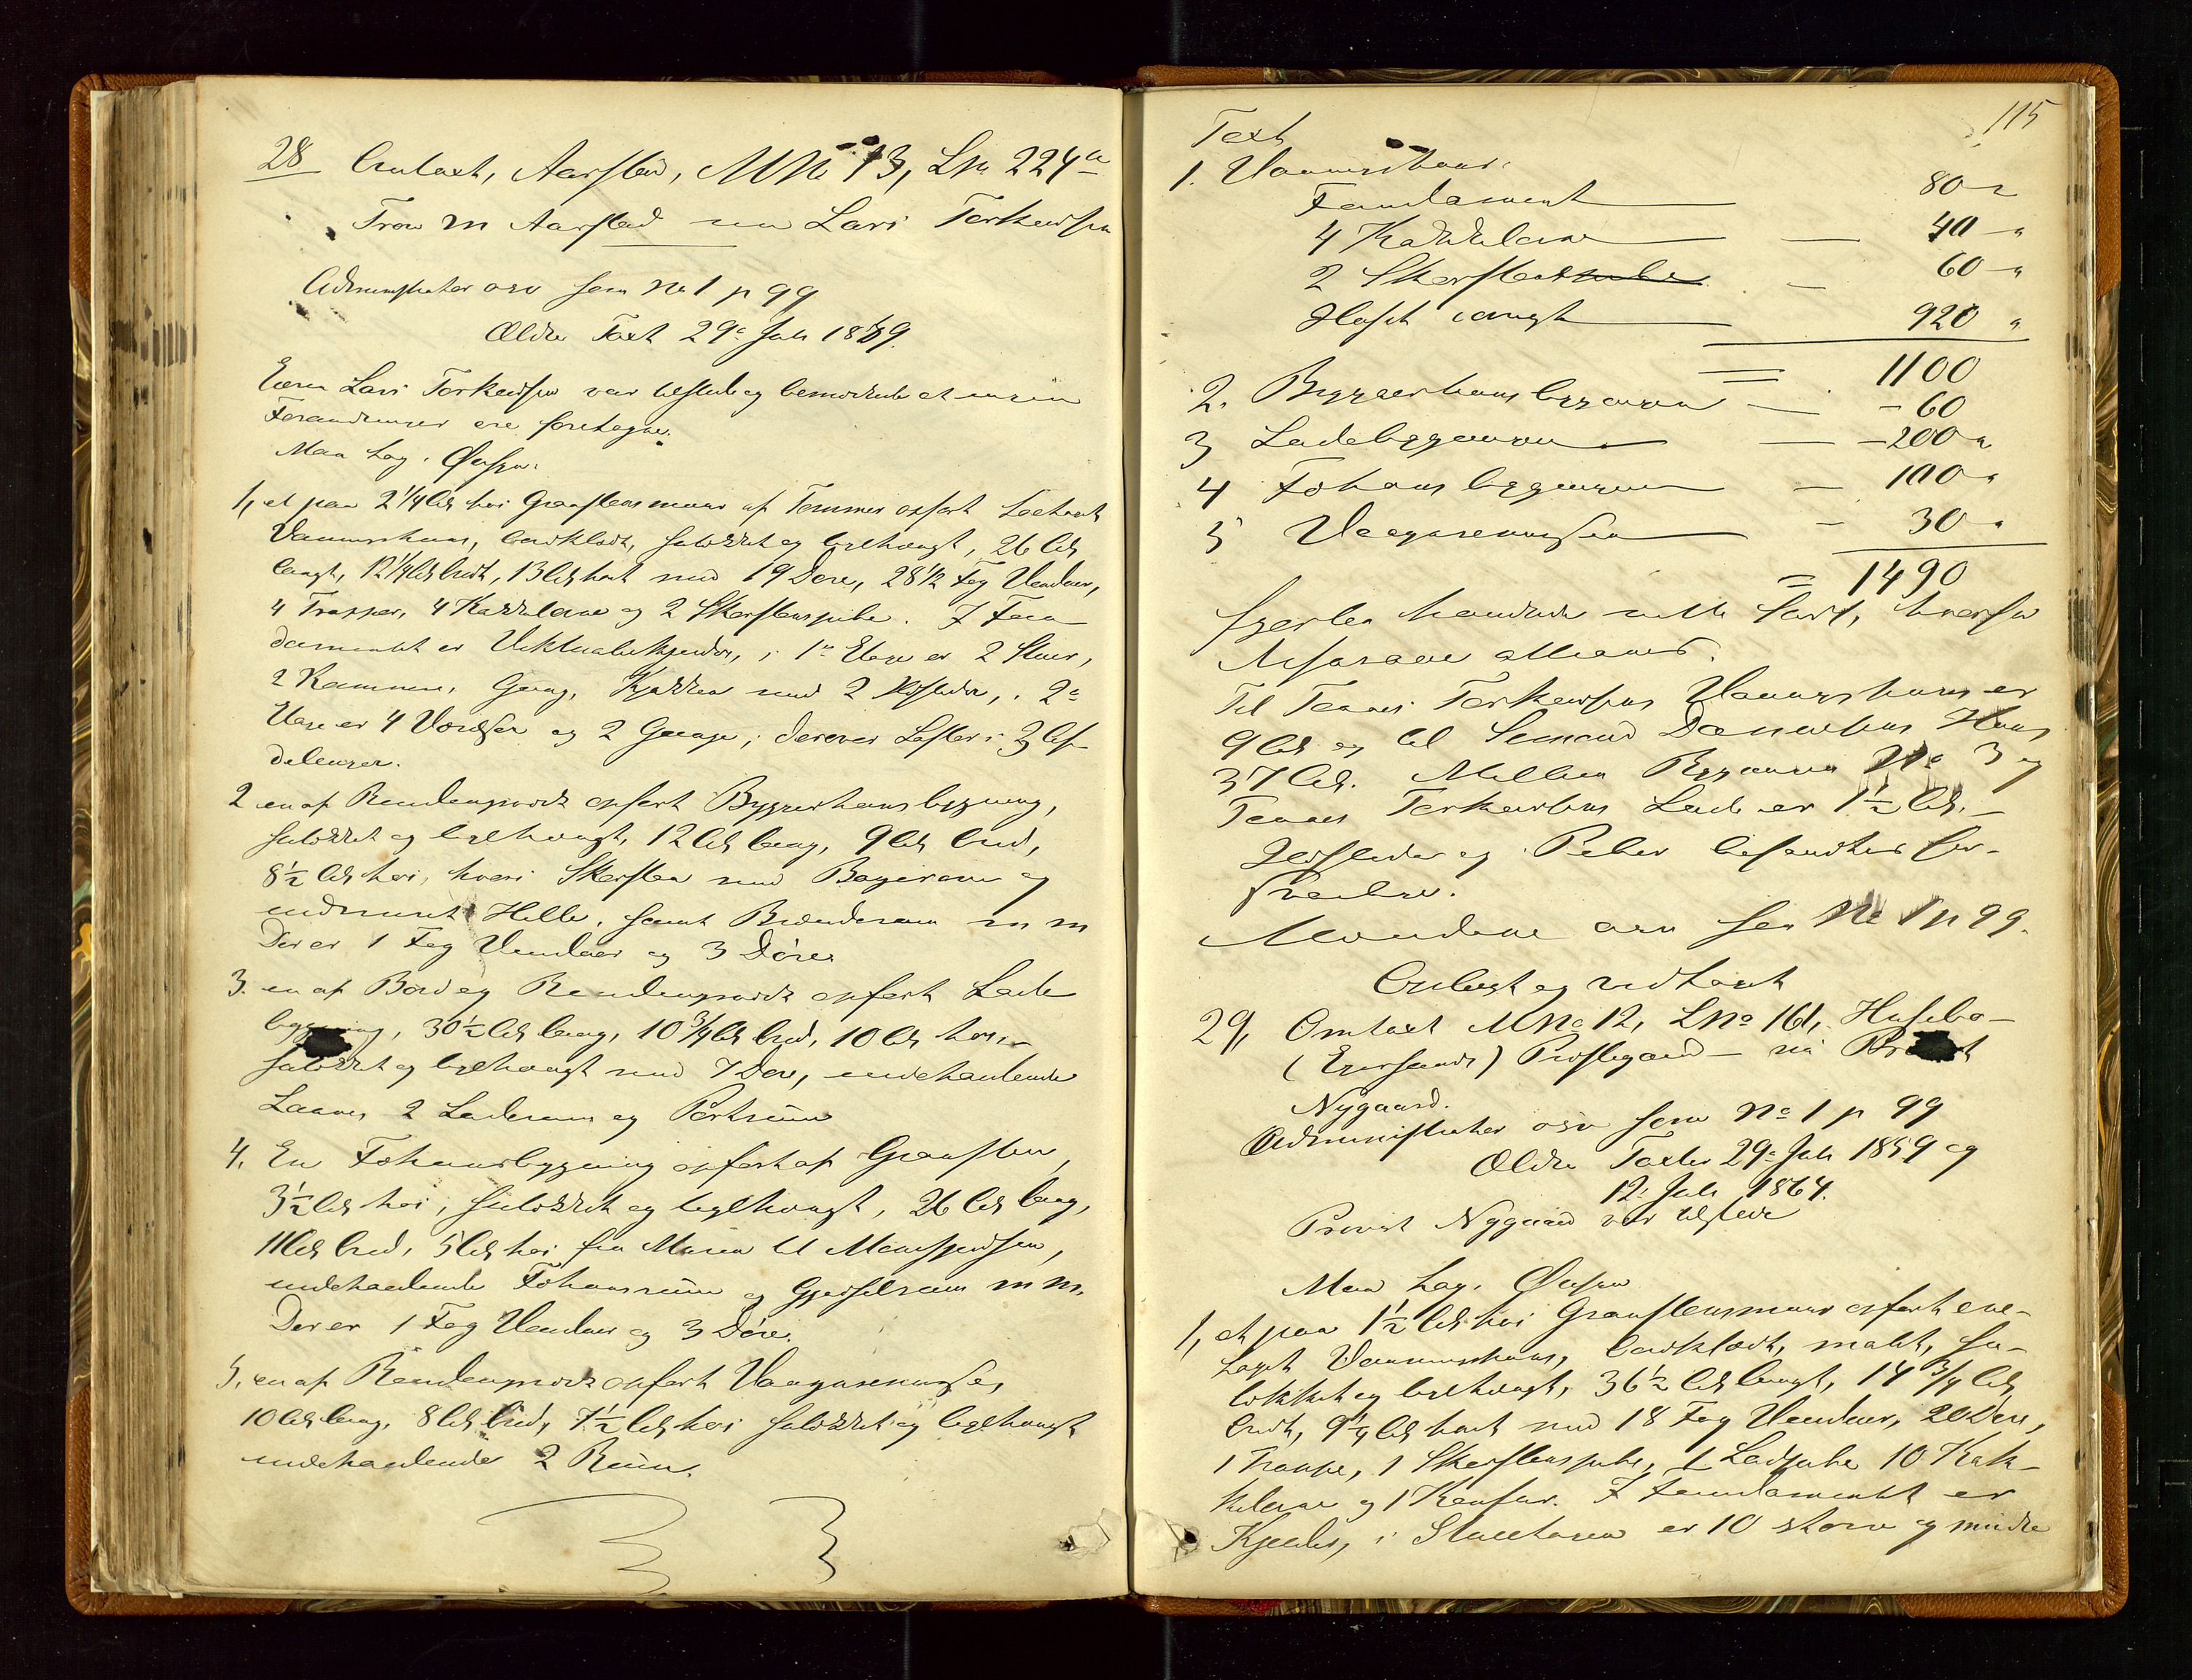 28 Omtaxt, Aarstad, MNo 13, Lno 224a
Aarstad Lars Torkelsen
Administrator osv som No 1 p 99
Ældre Taxt 29de Juli 1859.
Eieren Lars Torkelsen var tilstede og bemærkede at ingen
Forandringer ere foretagne.
Man tog i Øiesyn:
1, et paa 2 1/4 Al. høi Graastensmuur af Tømmer opført Toetages
Vaaningshuus, bordklædt, sutökket og teglhængt, 26 Al.
langt, 12 1/4 Al. bredt, 13 Al. høit med 19 Døre, 28 1/2 Fag Vinduer,
4 Trapper, 4 Kakkelovne og 2 Skorstenspiber. I Fun-
damentet er Viktualiekjelder, i 1ste Etage er 2 Stuer,
2 Kammere, Gang, Kjøkken med 2 Ildsteder, i 2den
Etage er 4 Værelser og 2 Gange; derover Lofter i 3 Af-
delinger.
2 en af Bindingsværk opført Bryggerhuusbygning,
sutökket og teglhængt, 12 Al. lang, 9 Al. bred,
8 1/2 Al. høi, hvori Skorsten med Bagerovn og
indmuret Helle, samt Brænderum m m
Der er 1 Fag Vinduer og 3 Døre
3. en af Bord og Bindingsværk opført Lade
bygning, 30 1/2 Al. lang, 10 3/4 Al. bred, 10 Al. høi,
sutökket og teglhængt med 7 Døre, indeholdende
Laave, 2 Laderum og
4. En Føhuusbygning opført af Graasteen,
3 1/2 Al. høi, sutökket og teglhængt, 26 Al. lang,
11 Al. bred, 5 Al. høi fra Muren til Mønspidsen,
indeholdende Føhuusruum og Gjødselrum m m.
Der er 1 Fag Vinduer og 3 Døre.
5, en af Bindingsværk opført Vaagnremisse,
10 Al. lang, 8 Al. bred, 7 1/2 Al. høi sutökket og teglhængt
indeholdende 2 Ruum.
115
Taxt
1. Vaaningshuus:
Fundament 80 "
4 Kakkelovne — 40 - "
2 Skorstens — 60 - "
Huset iøvrigt 920 "
= 1100
2. Bryggerhuusbygningen — - 60
3 Ladebygningen — - 200 "
4 Føhuusbygningen — 100 "
5 Vaagnremissen - 30 "
= 1490
fjorten hundrede nitti Spd, hvorfor
Assurance attraaes.
Til Tønnes Torkelsens Vaaningshuus er
9 Al. og til Simond Danielsens Huus
37 Al. Mellem Bygningen No 3 og
Tønnes Torkelsens Lade er 1 1/2 Al. -
Ildsteder og Piber befandtes for-
svarlige.
Mændene osv som No 1 p 99.
Oplæst og vedtaget
29, Omtaxt MNo 12, Lno 161, Husebø -
(Egersunds) Præstegaard -
Nygaard.
Administrator osv som No 1 p 99
Ældre Taxter 29de Juli 1859 og
12te Juli 1864.
Provst Nygaard var tilstede
Man tog i Øiesyn
1, et paa 1 1/2 Al. høi Graastensmuur opført eeta-
taget Vaaningshuus, bordklædt, malet, su-
tökket og teglhængt, 36 1/2 Al. langt, 14 3/4 Al.
bredt, 9 1/4 Al. høit med 18 Fag Vinduer, 20 Døre,
1 Trappe, 1 Skorstenspibe, 1 Ladpibe 10 Kak-
kelovne og 1 Komfur. I Fundamentet er
Kjelder, i Stueetagen er 10 større og mindre